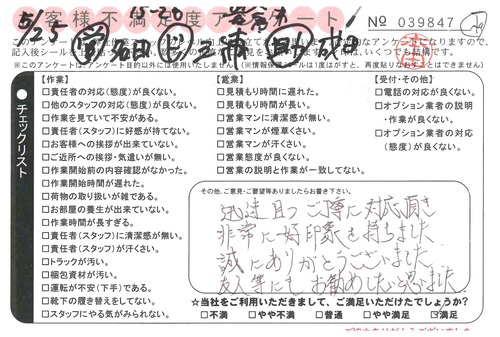 お客様不満足度アンケート
№ 039847
5/25
このアンケート
のアンケートになりますので、
記入後シールを
構です。
※このアンケートは、アンケート目的以外には使用いたしません
(※情報保護シールは1度はがすと、再度貼りなおすことはできません)
チェックリスト
【作業】
□責任者の対応(態度)が良くない。
□他のスタッフの対応(態度)が良くない。
□作業を見ていて不安がある。
□責任者(スタッフ)に好感が持てない。
□お客様への挨拶が出来ていない。
□ご近所への挨拶・気遣いが無い。
□作業開始前の内容確認がなかった。
□作業開始時間が遅れた。
□荷物の取り扱いが雑である。
□お部屋の養生が出来ていない。
□作業時間が長すぎる。
□責任者(スタッフ)に清潔感が無い。
□責任者(スタッフ)が汗くさい。
□トラックが汚い。
□梱包資材が汚い。
□運転が不安(下手)である。
□靴下の履き替えをしてない。
□スタッフにやる気がみられない。
【営業】
□見積もり時間に遅れた。
□見積もり時間が長い。
□営業マンに清潔感が無い。
□営業マンが煙草くさい。
□営業マンが汗くさい。
□営業態度が良くない。
□営業の説明と作業が一致してない。
【受付・その他】
□電話の対応が良くない。
□オプション業者の説明
・作業が良くない。
□オプション業者の対応
(態度)が良くない。
その他、ご意見・ご要望等ありましたらお書き下さい。
迅速且つご丁寧に対応頂き
非常に好印象を持ちました
誠にありがとうございました
友人等にもお勧めしたいと思いました。
☆当社をご利用いただきまして、ご満足いただけたでしょうか?
□不満 □やや不満 □普通 □やや満足 ☑満足
ご協力ありがとうございました